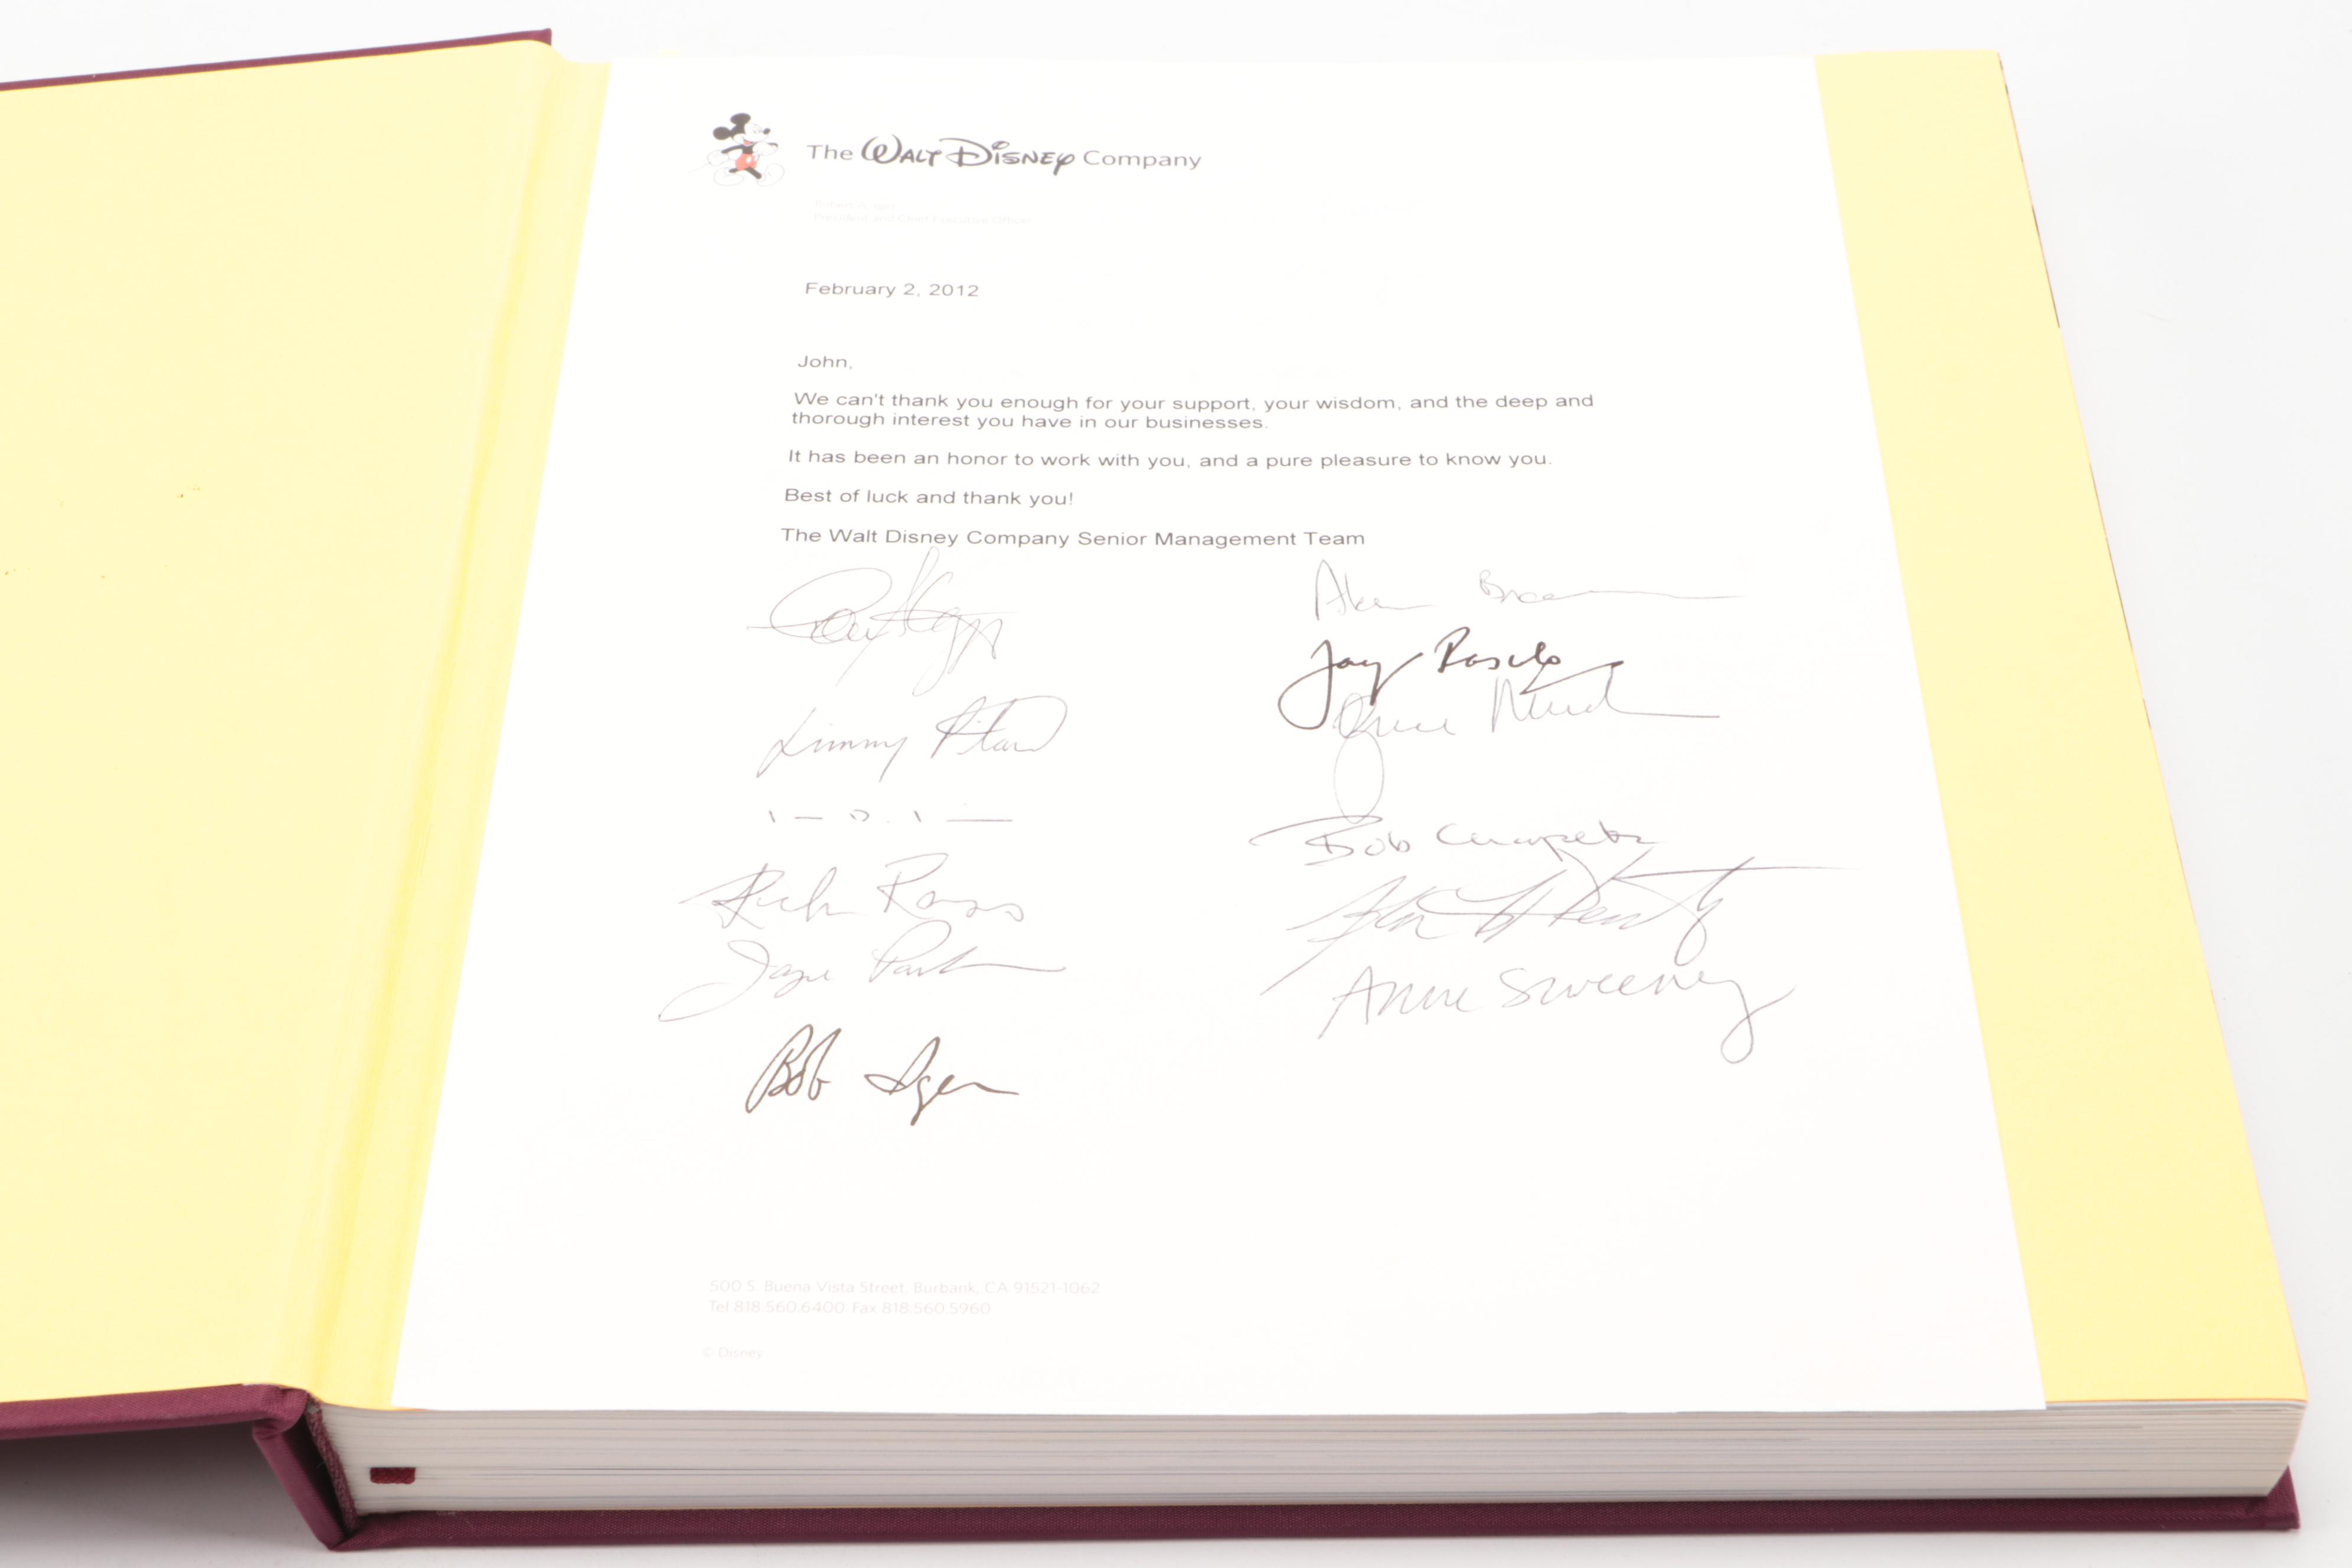 The WALT DISNEY Company
Robert A. Iger
President and Chief Executive Officer
February 2, 2012
John,
We can't thank you enough for your support, your wisdom, and the deep and
thorough interest you have in our businesses.
It has been an honor to work with you, and a pure pleasure to know you.
Best of luck and thank you!
The Walt Disney Company Senior Management Team
Jay Rasulo
Rich Ross
Bob
Anne Sweeney
Bob Iger
500 S. Buena Vista Street, Burbank, CA 91521-1062
Tel 818.560.6400 Fax 818.560.5960
© Disney